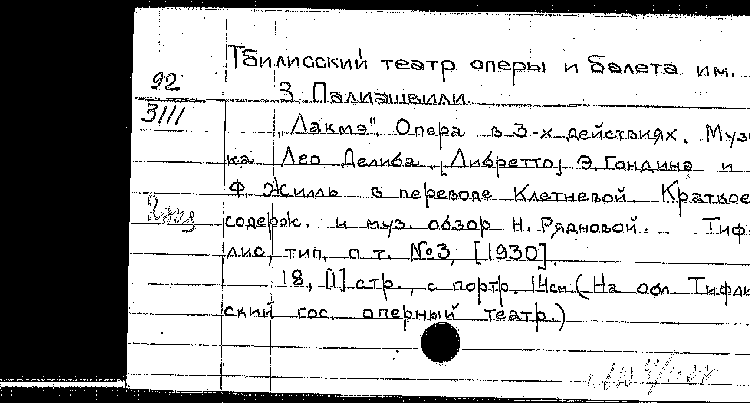 Тбилисский театр оперы и балета им.
92
З. Палиашвили
3111
"Лакмэ". Опера в 3-х действиях. Музы
ка Лео Делиба. [Либретто] Э. Гондинэ и
Ф. Жилль в переводе Клетневой. Краткое
содерж. и муз. обзор Н. Рядновой. Тиф
лис, тип. п. т. №3, [1930].
18, [1] стр., с портр. 14см (На обл. Тифли
ский гос. оперный театр.)